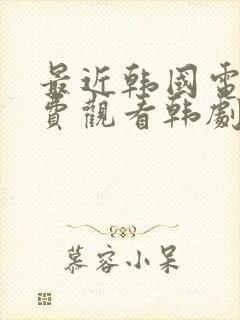 最近韩國電
費觀看韩劇
慕容小呆